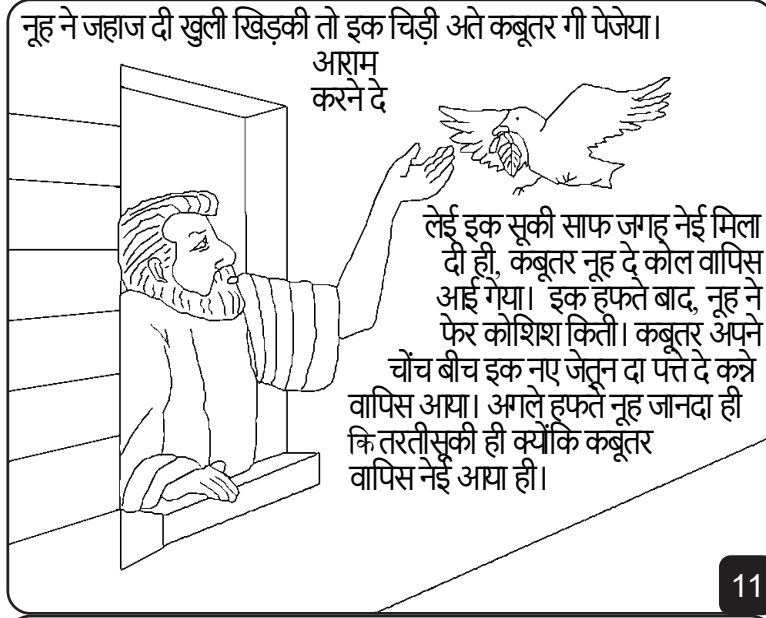 नूह ने जहाज दी खुली खिड़की तो इक चिड़ी अते कबूतर गी पेजेया।
आराम
करने दे
लेई इक सूकी साफ जगह नेई मिला
दी ही, कबूतर नूह दे कोल वापिस
आई गेया। इक हफते बाद, नूह ने
फेर कोशिश किती। कबूतर अपने
चोंच बीच इक नए जेतून दा पत्ते दे कन्ने
वापिस आया। अगले हफते नूह जानदा ही
कि तरतीसूकी ही क्योंकि कबूतर
वापिस नेई आया ही।
11